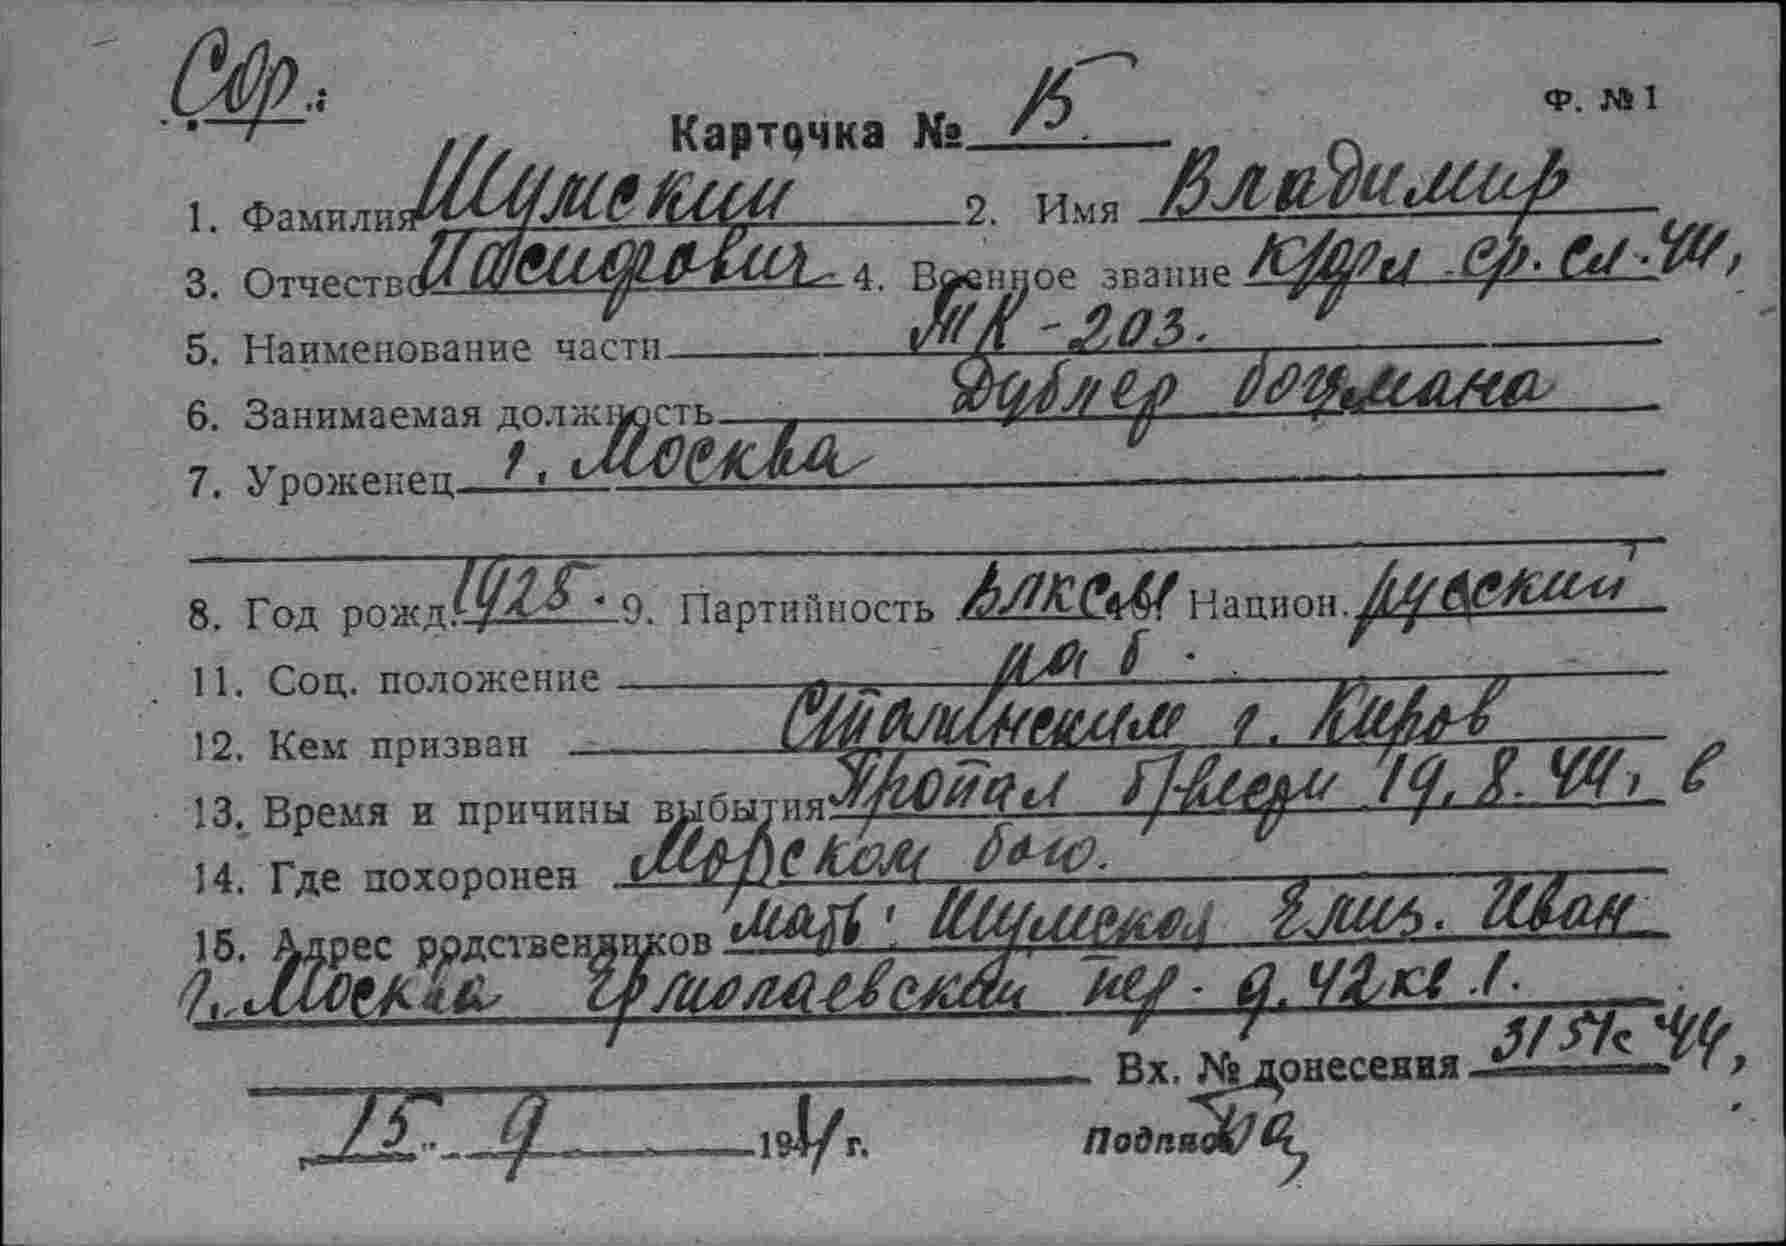 Сдр.:
Карточка № 15 Ф. № 1
1. Фамилия Шумский 2. Имя Владимир
3. Отчество Иосифович 4. Военное звание к/фл ср. сл. 44,
5. Наименование части ТК-203.
6. Занимаемая должность Дублер боцмана
7. Уроженец г. Москва
8. Год рожд. 1925. 9. Партийность ВЛКСМ Национ. русский
11. Соц. положение раб.
12. Кем призван Сталинским г. Киров
13. Время и причины выбытия Пропал 19.8.44, в
14. Где похоронен Морском бою.
15. Адрес родственников мать: Шумская Елиз. Иван
г. Москва Ермолаевский пер. д. 42 кв 1.
Вх. № донесения 44,
15. 9 1944 г. Подпись